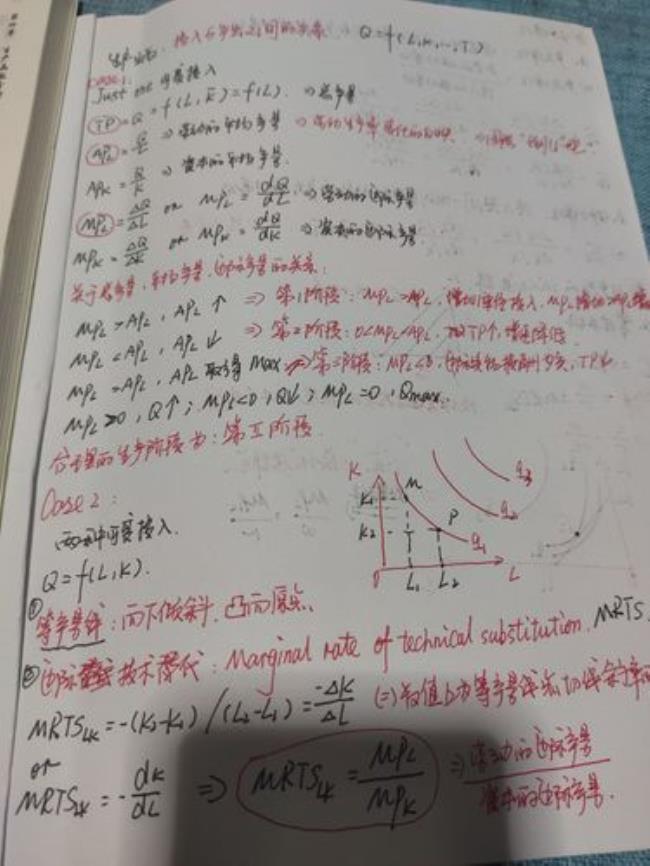 生产函数: 投入与产出之间的关系. Q=f(L,K,...,T)
Case 1:
Just one 可变投入
TP=Q=f(L,K̄)=f(L). ⇒总产量
AP_L=Q/L ⇒劳动的平均产量 ⇒劳动生产率
AP_K=Q/K ⇒资本的平均产量.
MP_L=ΔQ/ΔL or MP_L=dQ/dL ⇒劳动的边际产量
MP_K=ΔQ/ΔK or MP_K=dQ/dK ⇒资本的边际产量
关于总产量,平均产量,边际产量的关系:
MP_L>AP_L, AP_L↑ ⇒第1阶段: MP_L>AP_L, 增加单位投入, MP_L
MP_L<AP_L, AP_L↓ ⇒第2阶段: 0<MP_L<AP_L, TP↑, 增速降低.
MP_L=AP_L, AP_L取得max ⇒第三阶段: MP_L<0, TP↓.
MP_L>0, Q↑; MP_L<0, Q↓; MP_L=0, Qmax.
合理的生产阶段为: 第二阶段.
Case 2:
两种可变投入.
Q=f(L,K).
K
K1
K2
M
P
q1
q2
q3
0
L1
L2
L
① 等产量线: 向下倾斜, 凸向原点.
② 边际技术替代: Marginal rate of technical substitution. MRTS
MRTS_LK=-(K2-K1)/(L2-L1)=-ΔK/ΔL (=)数值上为等产量线点切线斜率
or
MRTS_LK=-dK/dL ⇒ MRTS_LK=MP_L/MP_K ⇒劳动的边际产量/资本的边际产量.